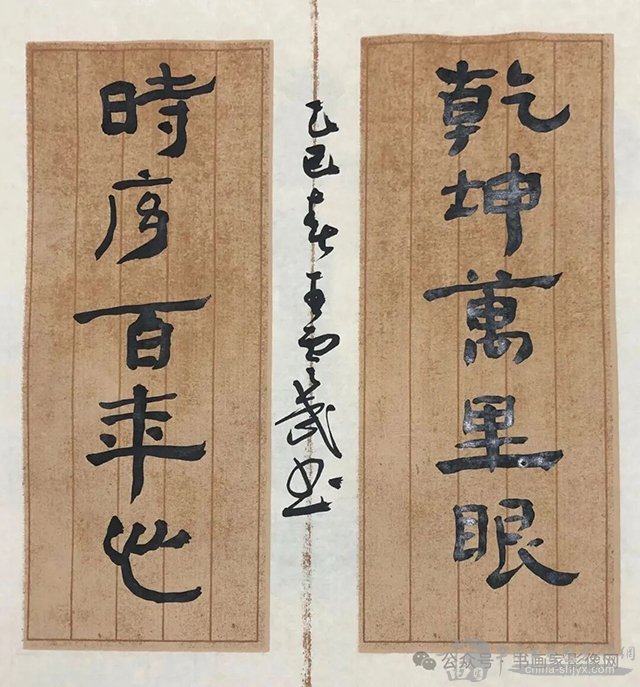 乾坤萬里眼
時序百年心
乙巳春王雲武书
公众号·书画家影像网
china-shjyx.com